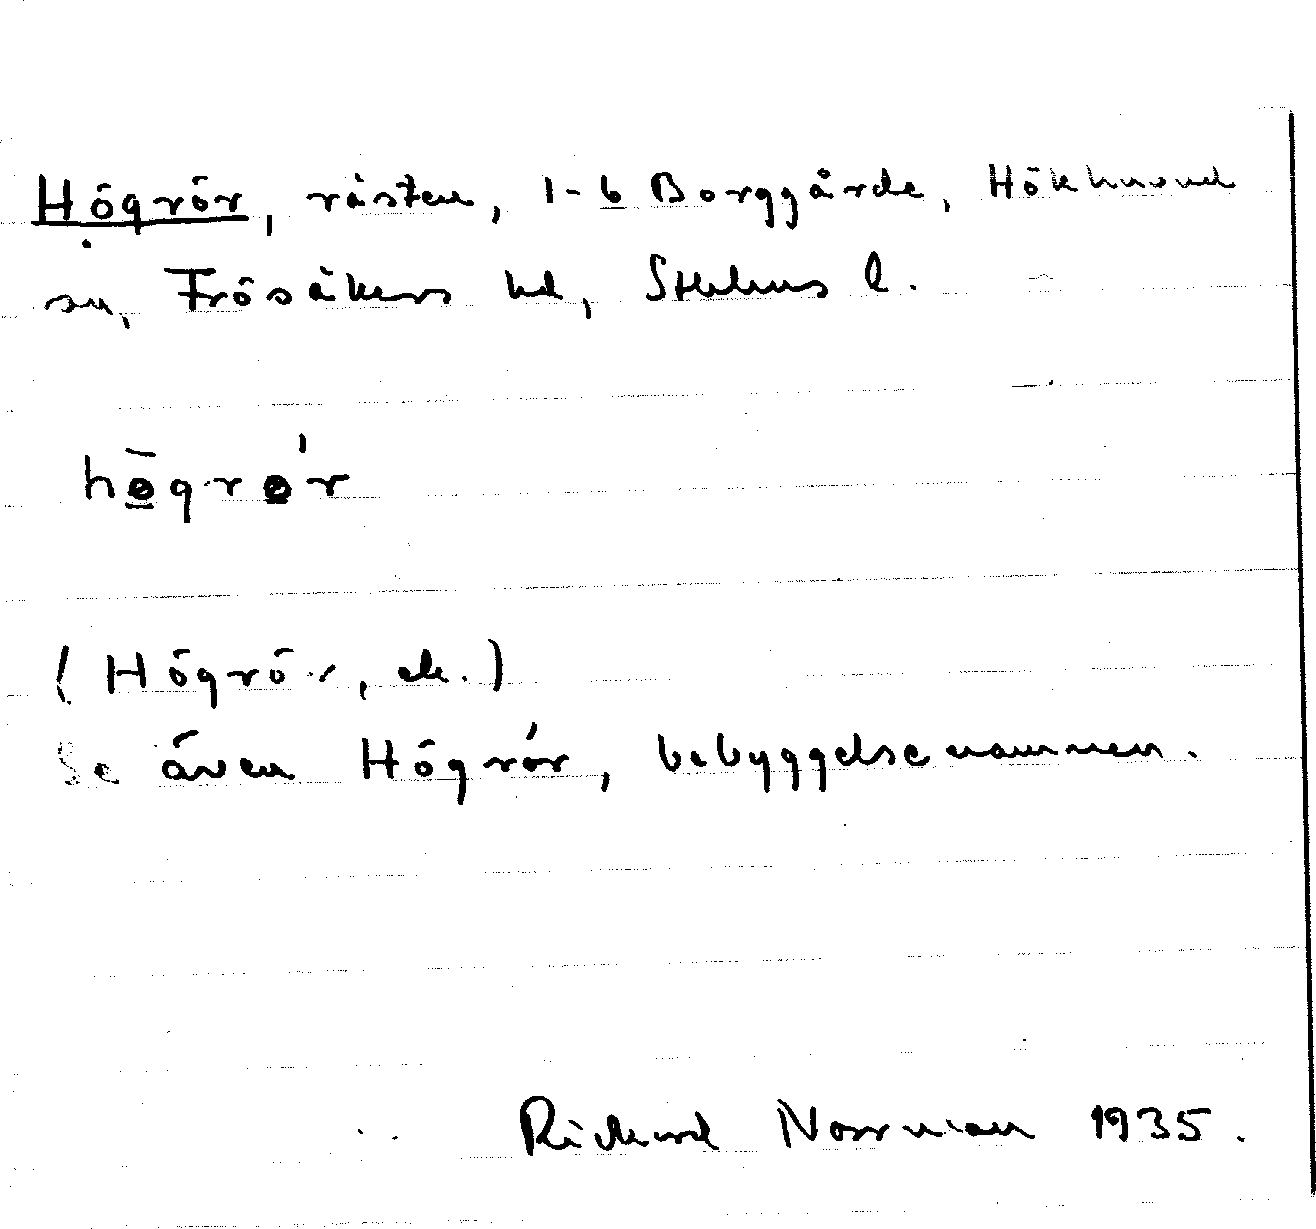 Högrör, råsten, 1-6 Borggårde, Hökhuvud
sn, Frösåkers hd, Sthlms l.
høgrør
(Högrör, ek.)
Se även Högrör, bebyggelsenamnen.
Rickard Norrman 1935.